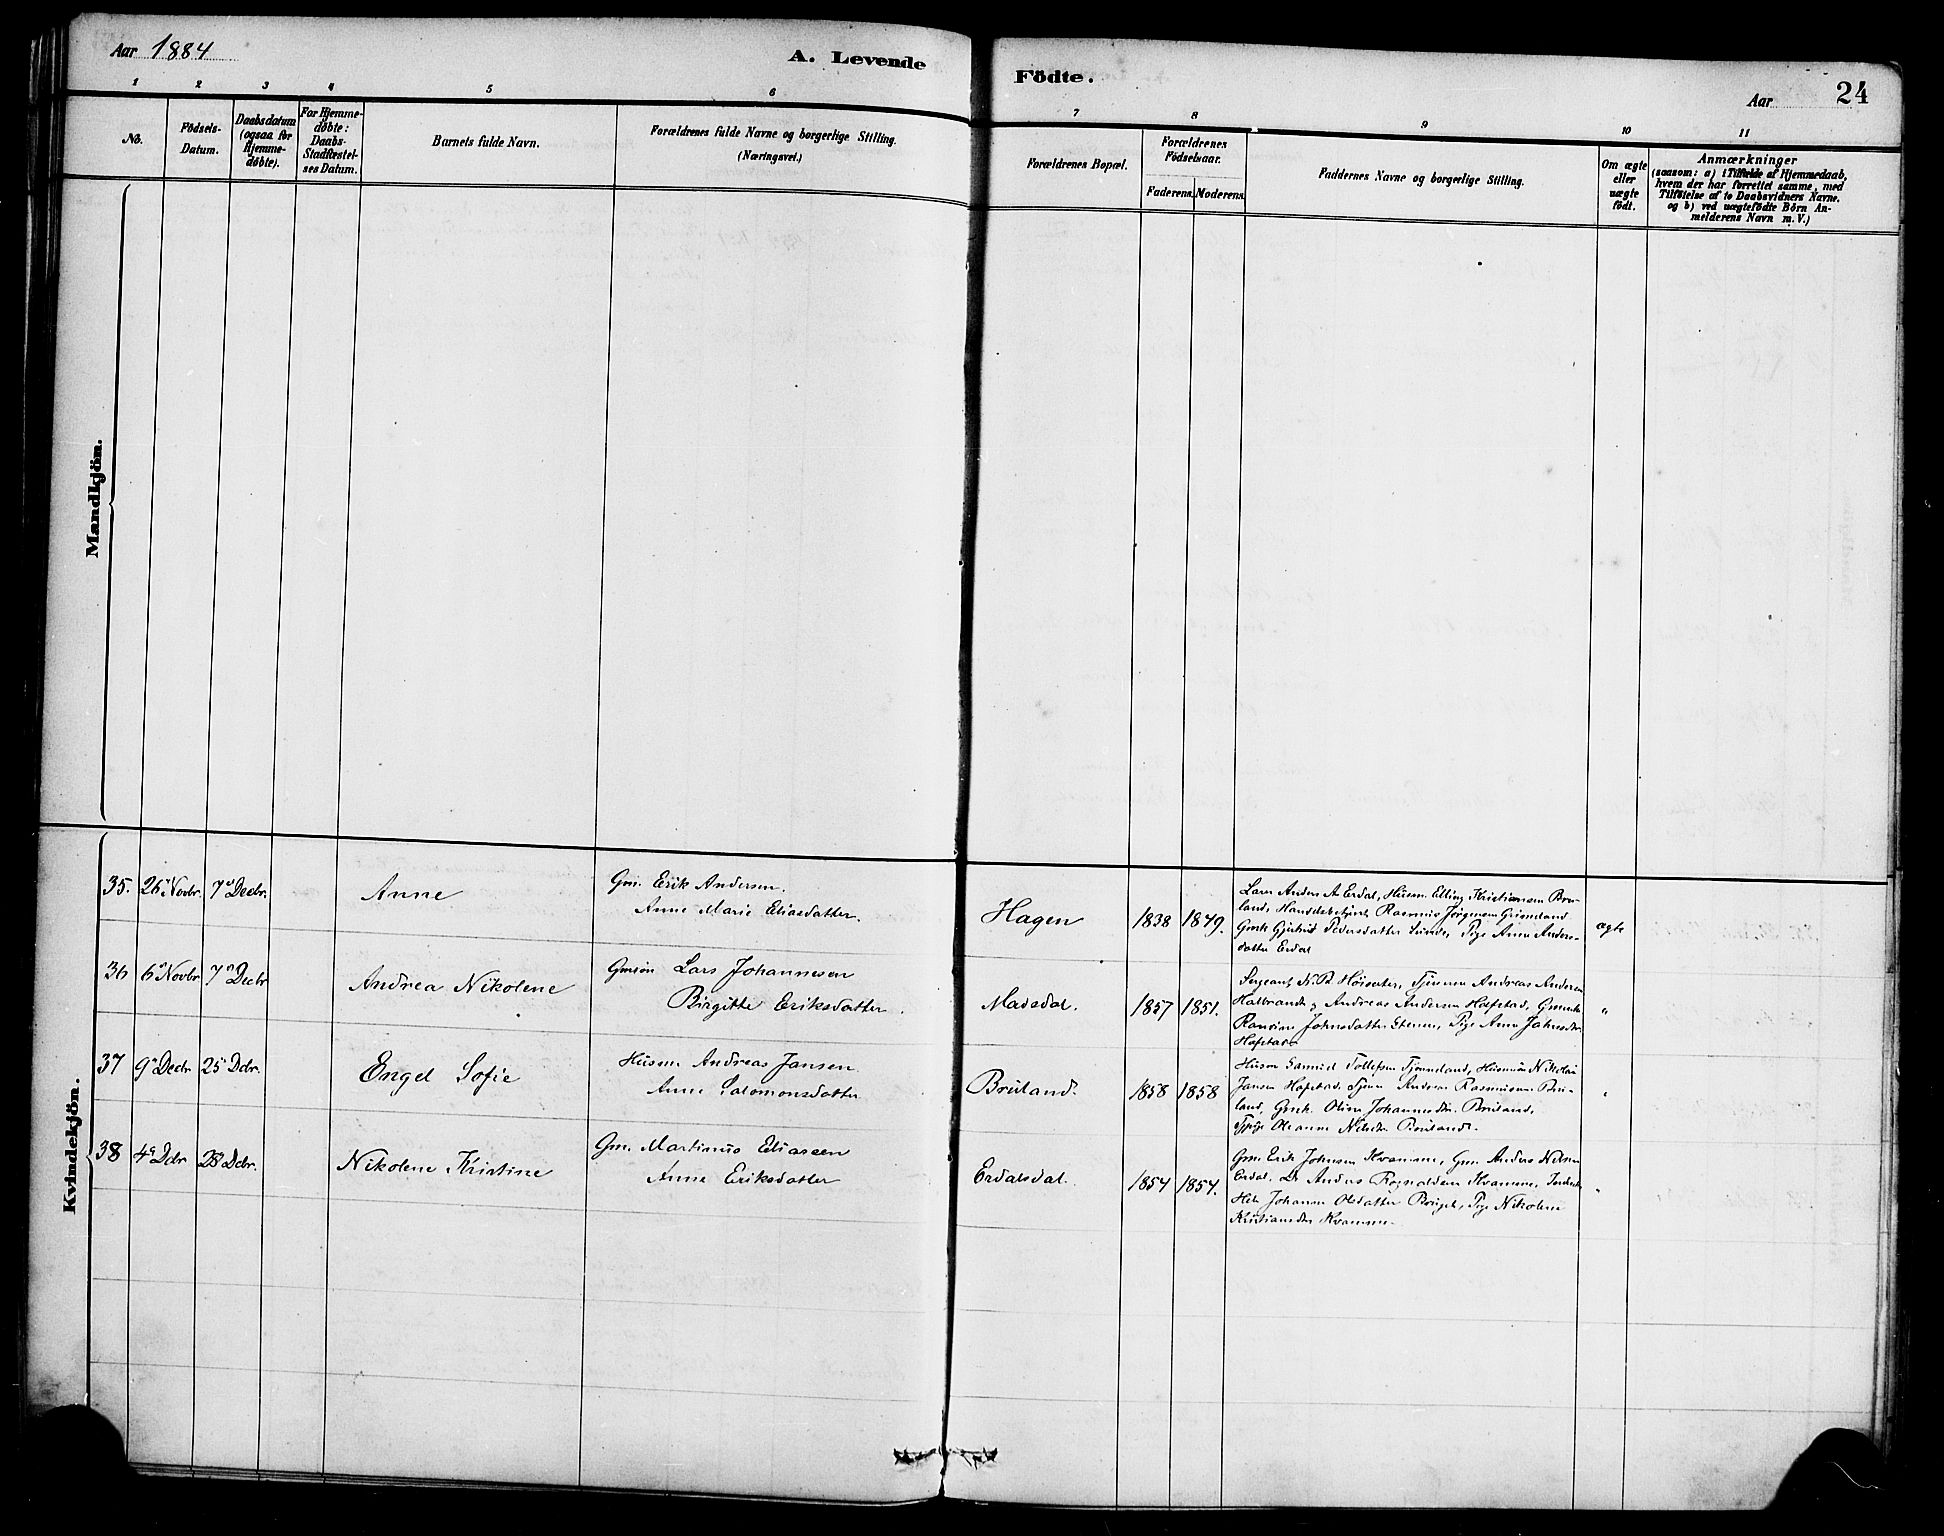 Aar 1884
A. Levende
Födte.
Aar
24
1 2 3 4 5 6 7 8 9 10 11
No.
Födsels-
Datum.
Daabsdatum
(ogsaa for
Hjemme-
døbte).
For Hjemme-
døbte:
Daabs-
Stadfæstel-
ses Datum.
Barnets fulde Navn.
Forældrenes fulde Navne og borgerlige Stilling.
(Næringsvei.)
Forældrenes Bopæl.
Forældrenes
Födselsaar.
Faderens.
Moderens.
Faddernes Navne og borgerlige Stilling.
Om ægte
eller
uægte
födt.
Anmærkninger
(saasom: a) i Tilfælde af Hjemmedaab,
hvem der har forrettet samme, med
Tilföielse af to Daabsvidners Navne.
og b) ved uægtefödte Börn An-
melderens Navn m. V.)
Mandkjön.
Kvindekjön.
35. 26 Novbr. 7 Decbr.
Anne
Gm. Erik Andersen.
Anne Marie Eliasdatter.
Hagen
1838 1849.
Lærer Anders A. Erdal, Husm. Elling Kristiansen Bru-
land, Handelsbetjent Rasmus Jørgensen Grimeland
Gmk Gjertrud Pedersdatter Sunde, Pige Anne Anders-
datter Erdal
ægte
36 6 Novbr 7 Decbr
Andrea Nikolene
Gmsøn Lars Johannesen
Birgitte Eriksdatter.
Madsdal.
1857 1851.
Sergeant N. P. Andreas Andersen
Halbrands, Andreas Andersen Hafstad, Gmk
Johnsdatter Stenen, Pige Anne Johnsdtr
Hafstad
"
37 9 Decbr 25 Dcbr.
Engel Sofie
Husm Andreas Jansen
Anne Salomonsdatter
Bruland.
1858 1858
Husm Samuel Tollefsen Tjønneland, Nikolai
Jansen Hafstad, Tjen. Anders Rasmussen Bru-
land, Gmk. Oline Johannesdtr. Bruland,
Pige Oleanne Nilsdtr Bruland.
"
38 4 Dcbr 28 Dcbr.
Nikolene Kristine
Gm. Martinus Eliassen
Anne Eriksdatter
Erdalsdal.
1854 1854.
Gm. Erik Johnsen Kvamme, Gm. Anders Nilsen
Erdal, Do Anders Kvamme,
Johanne Olsdatter Pige Nikolene
Kristiansdtr Kvamme.
"